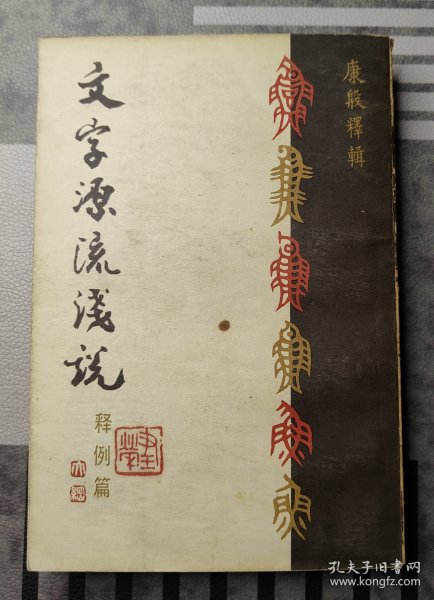 康殷釋輯
文字源流淺説
释例篇
孔夫子旧书网
www.kongfz.com